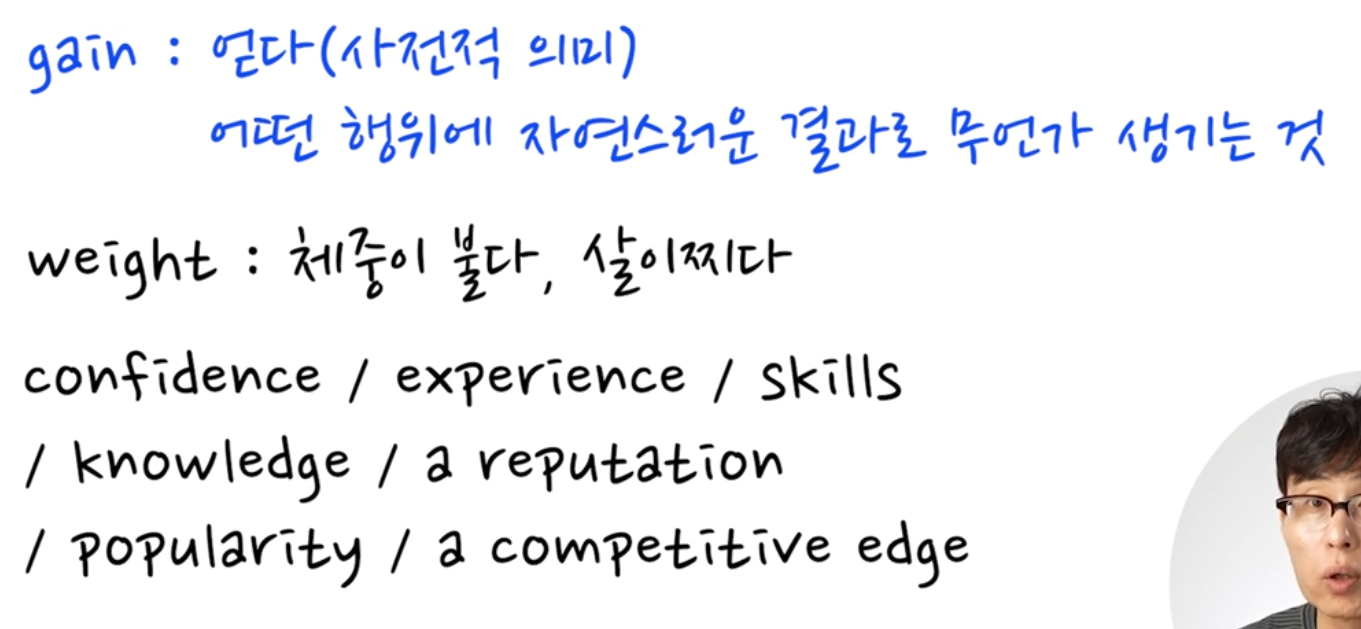 gain : 얻다(사전적 의미)
어떤 행위에 자연스러운 결과로 무언가 생기는 것
weight : 체중이 불다, 살이찌다
confidence / experience / skills
/ knowledge / a reputation
/ popularity / a competitive edge